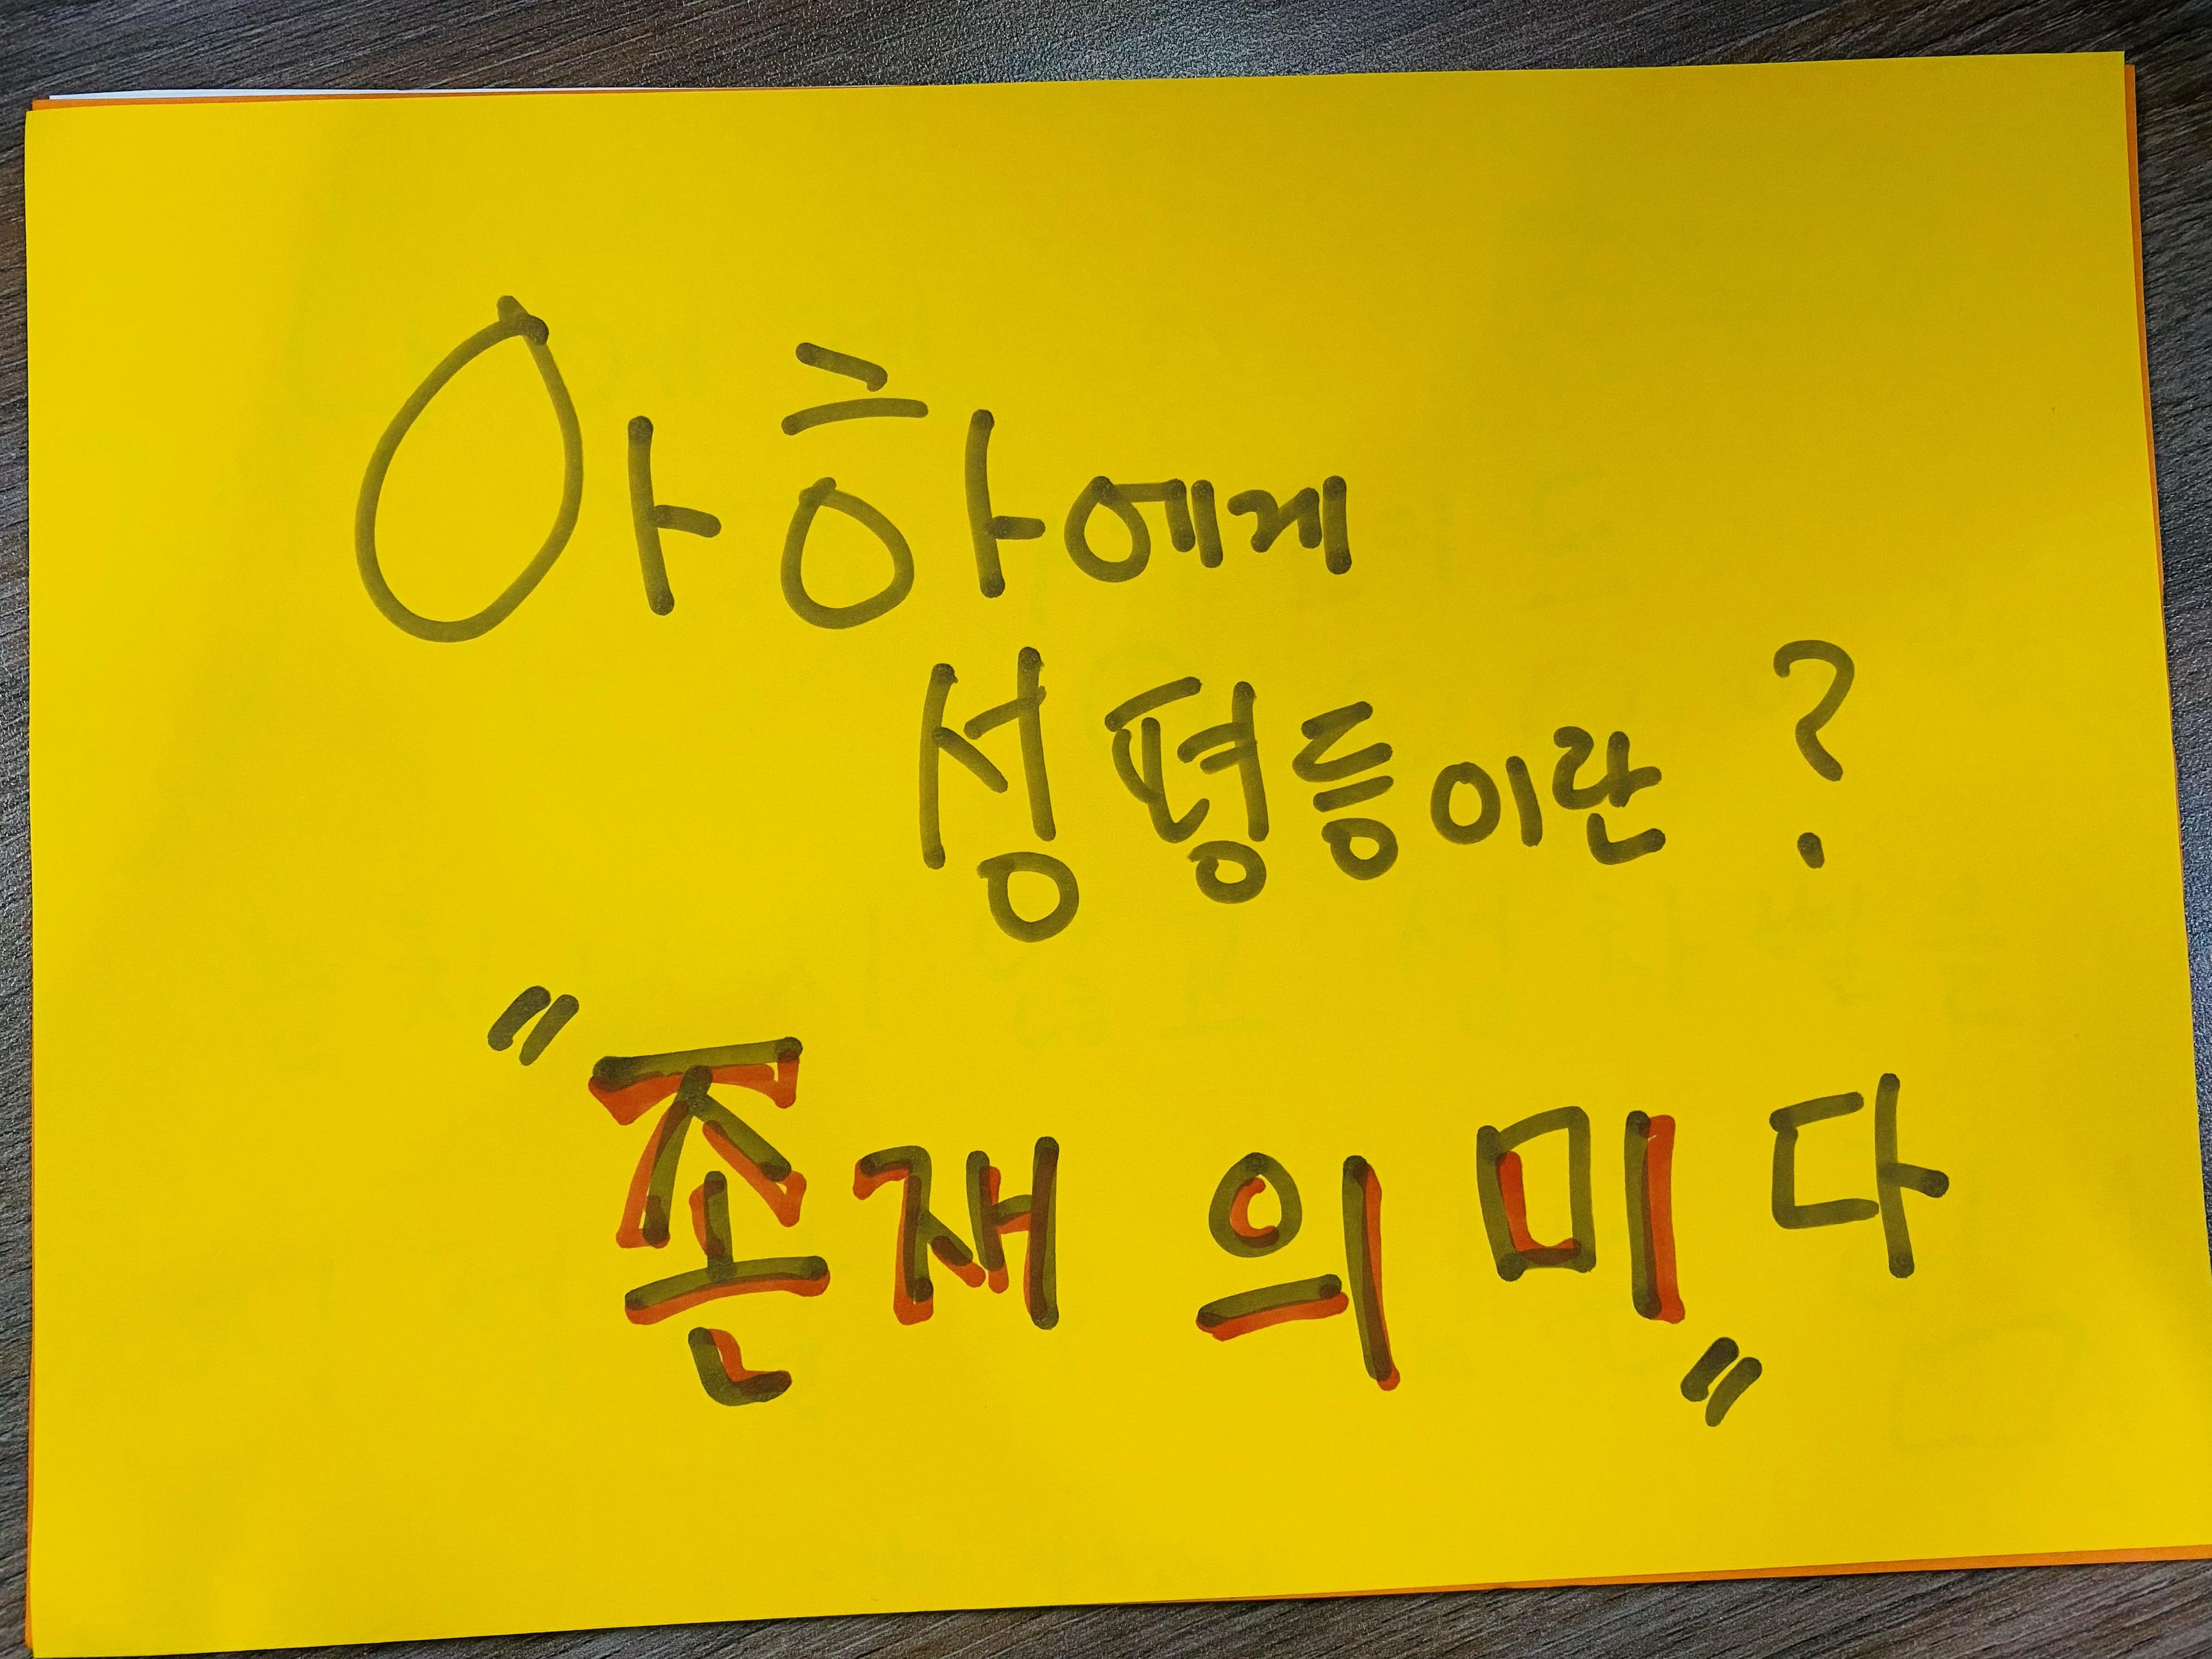 아하에게
성평등이란 ?
"존재 의미다"